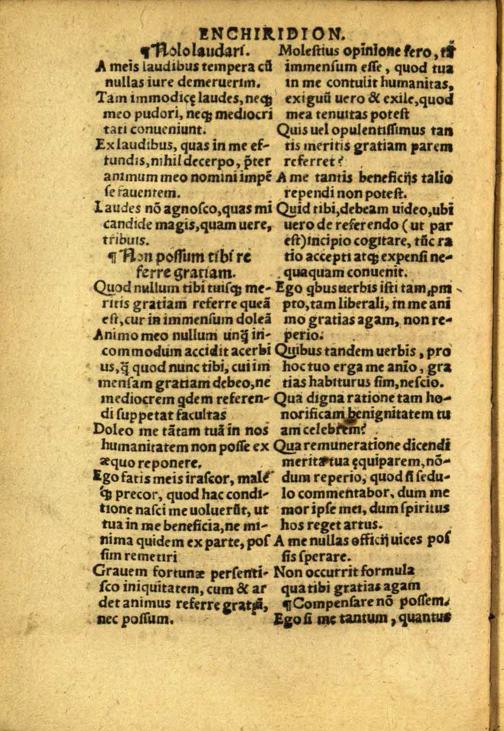 ENCHIRIDION.
¶ Nolo laudari.
A meis laudibus tempera cū
nullas iure demeruerim.
Tam immodicę laudes, neqꝫ
meo pudori, neqꝫ mediocri
tati conueniunt.
Ex laudibus, quas in me ef-
fundis, nihil decerpo, p̄ter
animum meo nomini impē
se fauentem.
Laudes nō agnosco, quas mi
candide magis, quam uere,
tribuis.
¶ Non possum tibi re
ferre gratiam.
Quod nullum tibi tuisqꝫ me-
ritis gratiam referre queā
est, cur in immensum doleā
Animo meo nullum unq̄ in-
commodum accidit acerbi
us, q̄ quod nunc tibi, cui im
mensam gratiam debeo, ne
mediocrem qdem referen-
di suppetat facultas
Doleo me tātam tuā in nos
humanitatem non posse ex
æquo reponere.
Ego fatis meis irascor, male
q̄ precor, quod hac condi-
tione nasci me uoluerūt, ut
tua in me beneficia, ne mi-
nima quidem ex parte, pos
sim remetiri
Grauem fortunæ persenti-
sco iniquitatem, cum & ar
det animus referre gratiā,
nec possum.
Molestius opinione fero, tā
immensum esse, quod tua
in me contulit humanitas,
exiguū uero & exile, quod
mea tenuitas potest
Quis uel opulentissimus tan
tis meritis gratiam parem
referret?
A me tantis beneficijs talio
rependi non potest.
Quid tibi, debeam uideo, ubi
uero de referendo (ut par
est) incipio cogitare, tūc ra
tio accepti atqꝫ expensi ne-
quaquam conuenit.
Ego qbus uerbis isti tam, pm
pto, tam liberali, in me ani
mo gratias agam, non re-
perio.
Quibus tandem uerbis, pro
hoc tuo erga me anīo, gra
tias habiturus sim, nescio.
Qua digna ratione tam ho-
norificam benignitatem tu
am celebrem?
Qua remuneratione dicendi
merita tua ęquiparem, nō-
dum reperio, quod si sedu-
lo commentabor, dum me
mor ipse mei, dum spiritus
hos reget artus.
A me nullas officij uices pos
sis sperare.
Non occurrit formula
qua tibi gratias agam
¶ Compensare nō possem.
Ego si me tantum, quantus